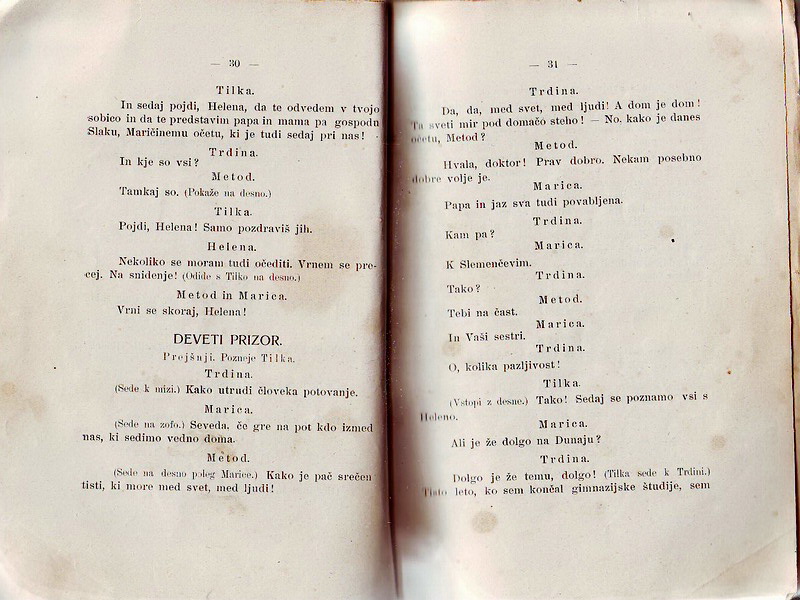 — 30 —
Tilka.
In sedaj pojdi, Helena, da te odvedem v tvojo
sobico in da te predstavim papa in mama pa gospodu
Slaku, Maričinemu očetu, ki je tudi sedaj pri nas!
Trdina.
In kje so vsi?
Metod.
Tamkaj so. (Pokaže na desno.)
Tilka.
Pojdi, Helena! Samo pozdraviš jih.
Helena.
Nekoliko se moram tudi očediti. Vrnem se pre-
cej. Na snidenje! (Odide s Tilko na desno.)
Metod in Marica.
Vrni se skoraj, Helena!
DEVETI PRIZOR.
Prejšnji. Pozneje Tilka.
Trdina.
(Sede k mizi.) Kako utrudi človeka potovanje.
Marica.
(Sede na zofo.) Seveda, če gre na pot kdo izmed
nas, ki sedimo vedno doma.
Metod.
(Sede na desno poleg Marice.) Kako je pač srečen
tisti, ki more med svet, med ljudi!
— 31 —
Trdina.
Da, da, med svet, med ljudi! A dom je dom!
Ta sveti mir pod domačo streho! — No, kako je danes
očetu, Metod?
Metod.
Hvala, doktor! Prav dobro. Nekam posebno
dobre volje je.
Marica.
Papa in jaz sva tudi povabljena.
Trdina.
Kam pa?
Marica.
K Slemenčevim.
Trdina.
Tako?
Metod.
Tebi na čast.
Marica.
In Vaši sestri.
Trdina.
O, kolika pazljivost!
Tilka.
(Vstopi z desne.) Tako! Sedaj se poznamo vsi s
Heleno.
Marica.
Ali je že dolgo na Dunaju?
Trdina.
Dolgo je že temu, dolgo! (Tilka sede k Trdini.)
Tisto leto, ko sem končal gimnazijske študije, sem